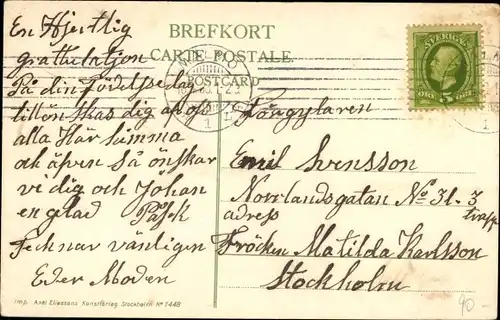 BREFKORT
CARTE POSTALE
POSTCARD
SVERIGE
5
ÖRE
En Hjertlig
grattulatjon
På din Födelsedag
tillönskas dig af oss
alla Här hemma
och även så önskar
vi dig och Johan
en glad Påsk
Tecknar vänligen
Eder Moder
Töngylaren
Emil Svensson
Norrlandsgatan No 31. 3
adress
Fröcken Matilda Karlsson
Stockholm
90-
Imp. Axel Eliassons Konstförlag. Stockholm. No 1448